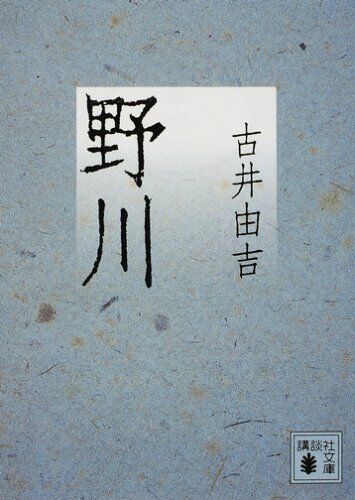 野川
古井由吉
講談社文庫